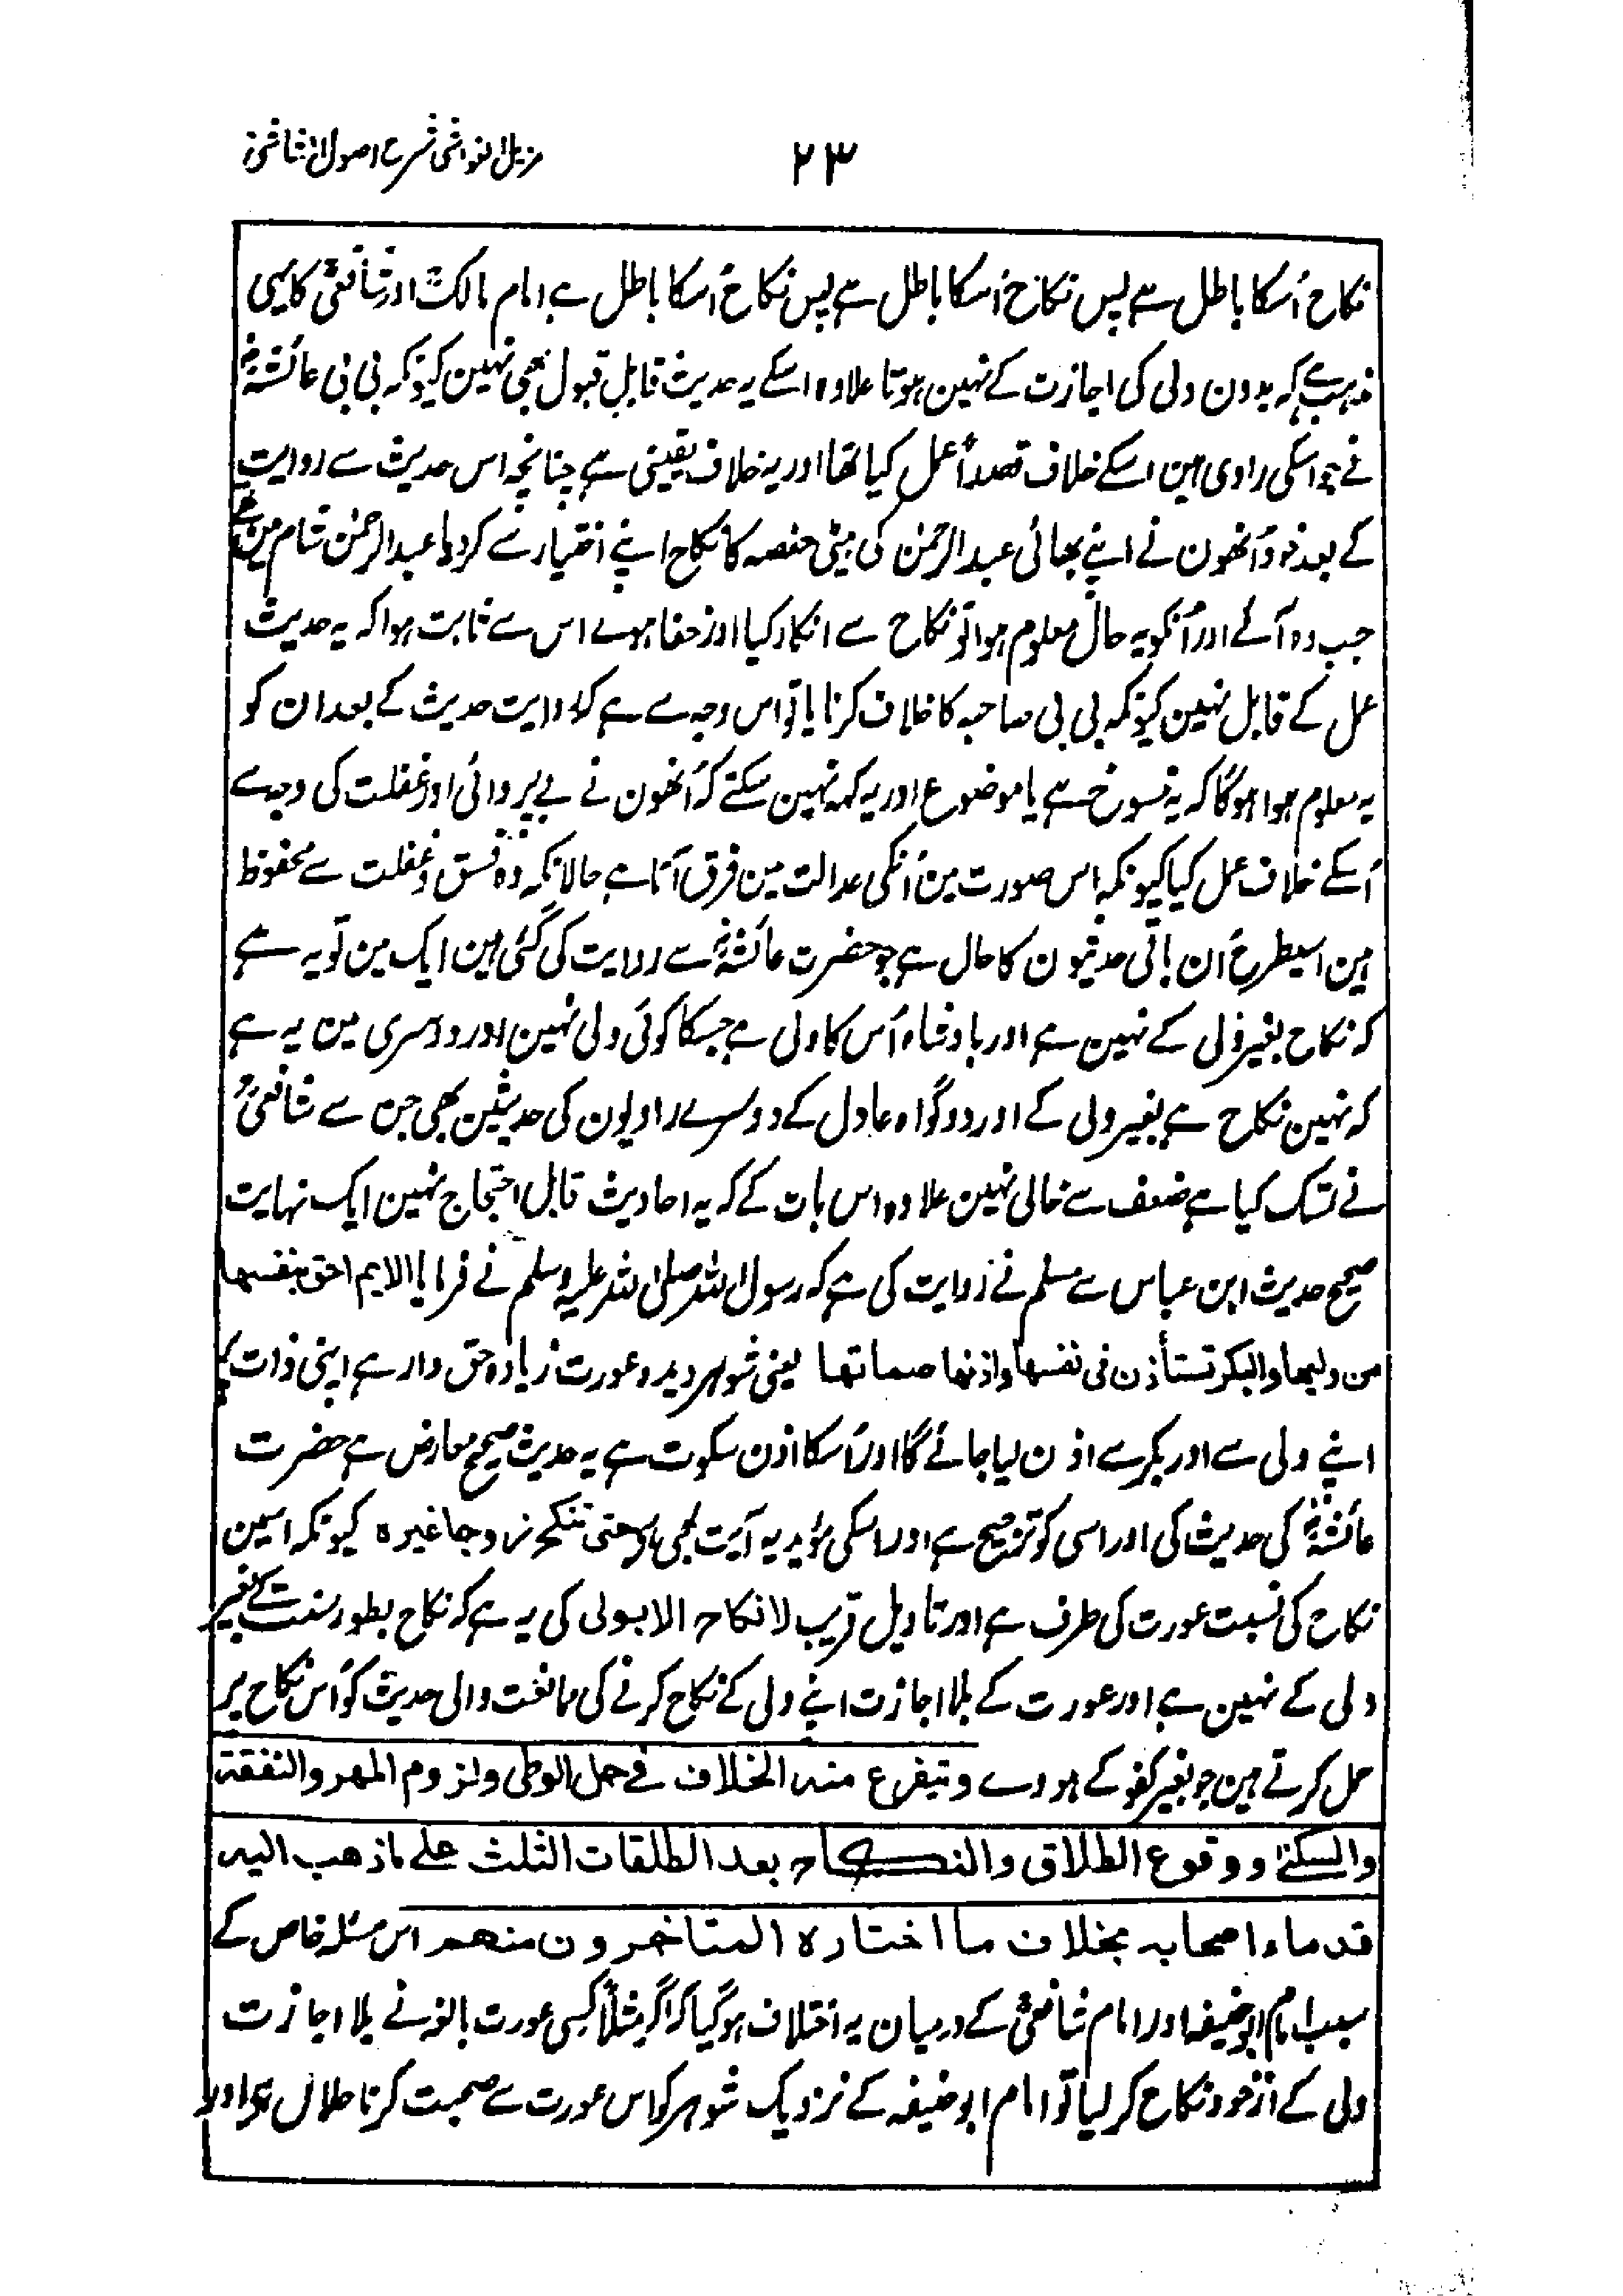 مزیل الغواشی شرح اصول الشاشی
۲۳
نکاح اُسکا باطل ہے پس نکاح اُسکا باطل ہے پس نکاح اُسکا باطل ہے امام مالکؒ اور شافعیؒ کا یہی
مذہب ہے کہ بدون ولی کی اجازت کے نہین ہوتا علاوہ اسکے یہ حدیث قابل قبول بھی نہین کیونکہ بی بی عائشہؓ
نے جو اسکی راوی ہین اسکے خلاف قصداً عمل کیا تھا اور یہ خلاف یقینی ہے چنانچہ اس حدیث سے روایت
کے بعد خود اُنھون نے اپنے بھائی عبدالرحمٰن کی بیٹی حفصہ کا نکاح اپنے اختیار سے کردیا عبدالرحمٰن شام مین تھے
جب وہ آئے اور اُنکو یہ حال معلوم ہوا تو نکاح سے انکار کیا اور خفا ہوے اس سے ثابت ہوا کہ یہ حدیث
عمل کے قابل نہین کیونکہ بی بی صاحبہ کا خلاف کرنا یا تو اس وجہ سے ہے کہ روایت حدیث کے بعد ان کو
یہ معلوم ہوا ہوگا کہ یہ منسوخ ہے یا موضوع اور یہ کہہ نہین سکتے کہ اُنھون نے بے پروائی اور غفلت کی وجہ سے
اُسکے خلاف عمل کیا کیونکہ اس صورت مین اُنکی عدالت مین فرق آتا ہے حالانکہ وہ فسق و غفلت سے محفوظ
ہین اسیطرح اُن باقی حدیثون کا حال ہے جو حضرت عائشہؓ سے روایت کی گئی ہین ایک مین تو یہ ہے
کہ نکاح بغیر ولی کے نہین ہے اور بادشاہ اُس کا ولی ہے جسکا کوئی ولی نہین اور دوسری مین یہ ہے
کہ نہین نکاح ہے بغیر ولی کے اور دو گواہ عادل کے دوسرے راویون کی حدیثین بھی جن سے شافعیؒ
نے تمسک کیا ہے ضعف سے خالی نہین علاوہ اس بات کے کہ یہ احادیث قابل احتجاج نہین ایک نہایت
صحیح حدیث ابن عباس سے مسلم نے روایت کی ہے کہ رسول اللہ صلی اللہ علیہ وسلم نے فرمایا الایم احق بنفسها
من ولیها والبکر تستأذن فی نفسها واذنها صماتها یعنی شوہر دیدہ عورت زیادہ حق دار ہے اپنی ذات کی
اپنے ولی سے اور بکر سے اذن لیا جائے گا اور اُسکا اذن سکوت ہے یہ حدیث صحیح معارض ہے حضرت
عائشہؓ کی حدیث کی اور اسی کو ترجیح ہے اور اسکی مؤید یہ آیت بھی ہے حتی تنکح زوجا غیرہ کیونکہ اسمین
نکاح کی نسبت عورت کی طرف ہے اور تاویل قریب لا نکاح الا بولی کی یہ ہے کہ نکاح بطور سنت کے بغیر
ولی کے نہین ہے اور عورت کے بلا اجازت اپنے ولی کے نکاح کرنے کی ممانعت والی حدیث کو اُس نکاح پر
حمل کرتے ہین جو بغیر کفو کے ہووے ویتفرع منہ الخلاف فی حل الوطی ولزوم المهر والنفقة
والسکنی ووقوع الطلاق والنکاح بعد الطلقات الثلث علی ما ذهب الیہ
قدماء اصحابہ بخلاف ما اختارہ المتاخرون منهم اس مسئلہ خاص کے
سبب امام ابو حنیفہ اور امام شافعیؒ کے درمیان یہ اختلاف ہوگیا کہ اگر مثلاً کسی عورت بالغہ نے بلا اجازت
ولی کے از خود نکاح کرلیا تو امام ابو حنیفہ کے نزدیک شوہر کو اس عورت سے صحبت کرنا حلال ہے اور